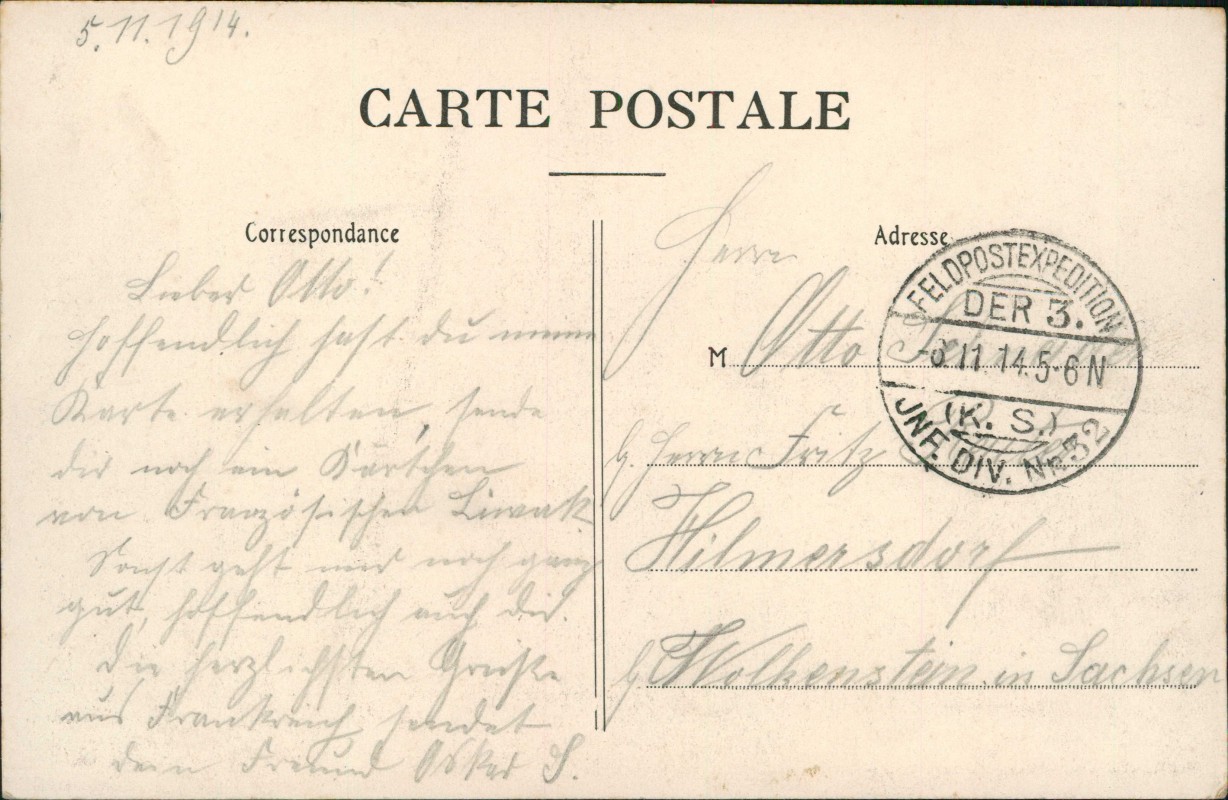 5.11.1914.
CARTE POSTALE
Correspondance
Lieber Otto!
Hoffendlich hast du meine
Karte erhalten, sende
dir noch ein Kärtchen
von Französischen Biwak
Sonst geht mir noch ganz
gut, hoffendlich auch dir.
Die herzlichsten Grüße
aus Frankreich sendet
dein Freund Oskar S.
Adresse
Herrn
M Otto
b. Herrn Fritz
Hilmersdorf
b/ Wolkenstein in Sachsen
FELDPOSTEXPEDITION
DER 3.
-6.11.14.5-6N
(K. S.)
JNF. DIV. Nr. 32